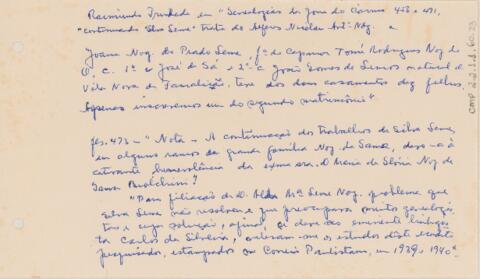 Raimundo Trindade em "Genealogias da Zona do Carmo 458 a 471,
"continuando Silva Leme" trata do Alferes Nicolau Antº Nog. e
Joana Nog. do Prado Leme, fª do Capmor Tomé Rodrigues Nog. do
Ó, C. 1º c/ José de Sá e 2º c/ João Gomes de Lemos natural de
Vila Nova de Famalicão, teve dos dois casamentos dez filhos.
Apenas inscrevemos um do segundo matrimônio"
fls. 473 - "Nota - A continuação dos trabalhos de Silva Leme,
em alguns ramos da grande família Nog. da Gama, deve-a à
cativante benevolência da exma sra. D. Maria da Glória Nog. da
Gama
"Para filiação de D. Mª Leme Nog. problema que
Silva Leme não resolveu e que preocupara muitos genealogis-
tas e cuja solução, afinal, se deve ao eminente linhagis-
ta Carlos da Silveira, valeram-me os estudos deste
pesquisador, estampados no Correio Paulistano, em 1939, 1940"
CMP 2.2.1.2.60.23